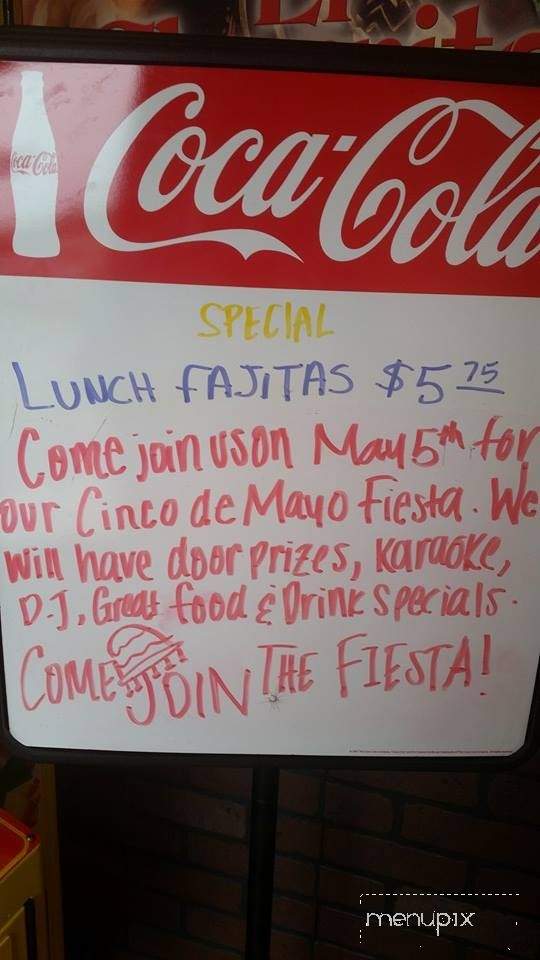 Coca-Cola
Coca-Cola
SPECIAL
LUNCH FAJITAS $5 75
Come join us on May 5th for
our Cinco de Mayo Fiesta. We
will have door prizes, Karaoke,
D.J, Great food & Drink specials.
COME JOIN THE FIESTA!
menupix